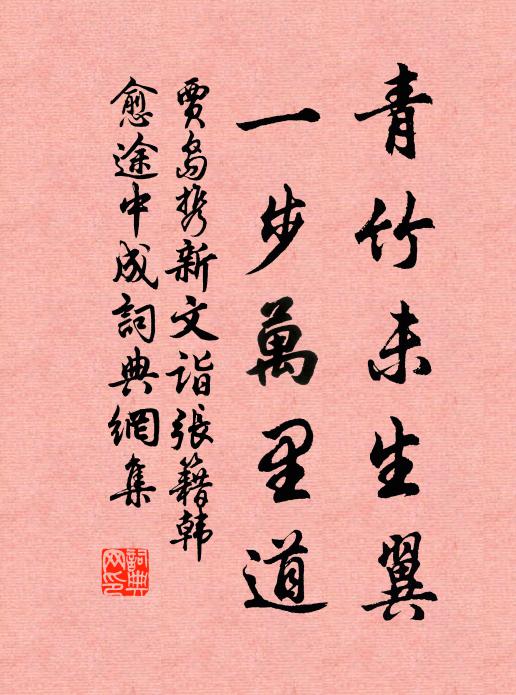 青竹未生翼
一步萬里道
賈島携新文詣張籍韓
愈途中成詞典網集
詞典
网印